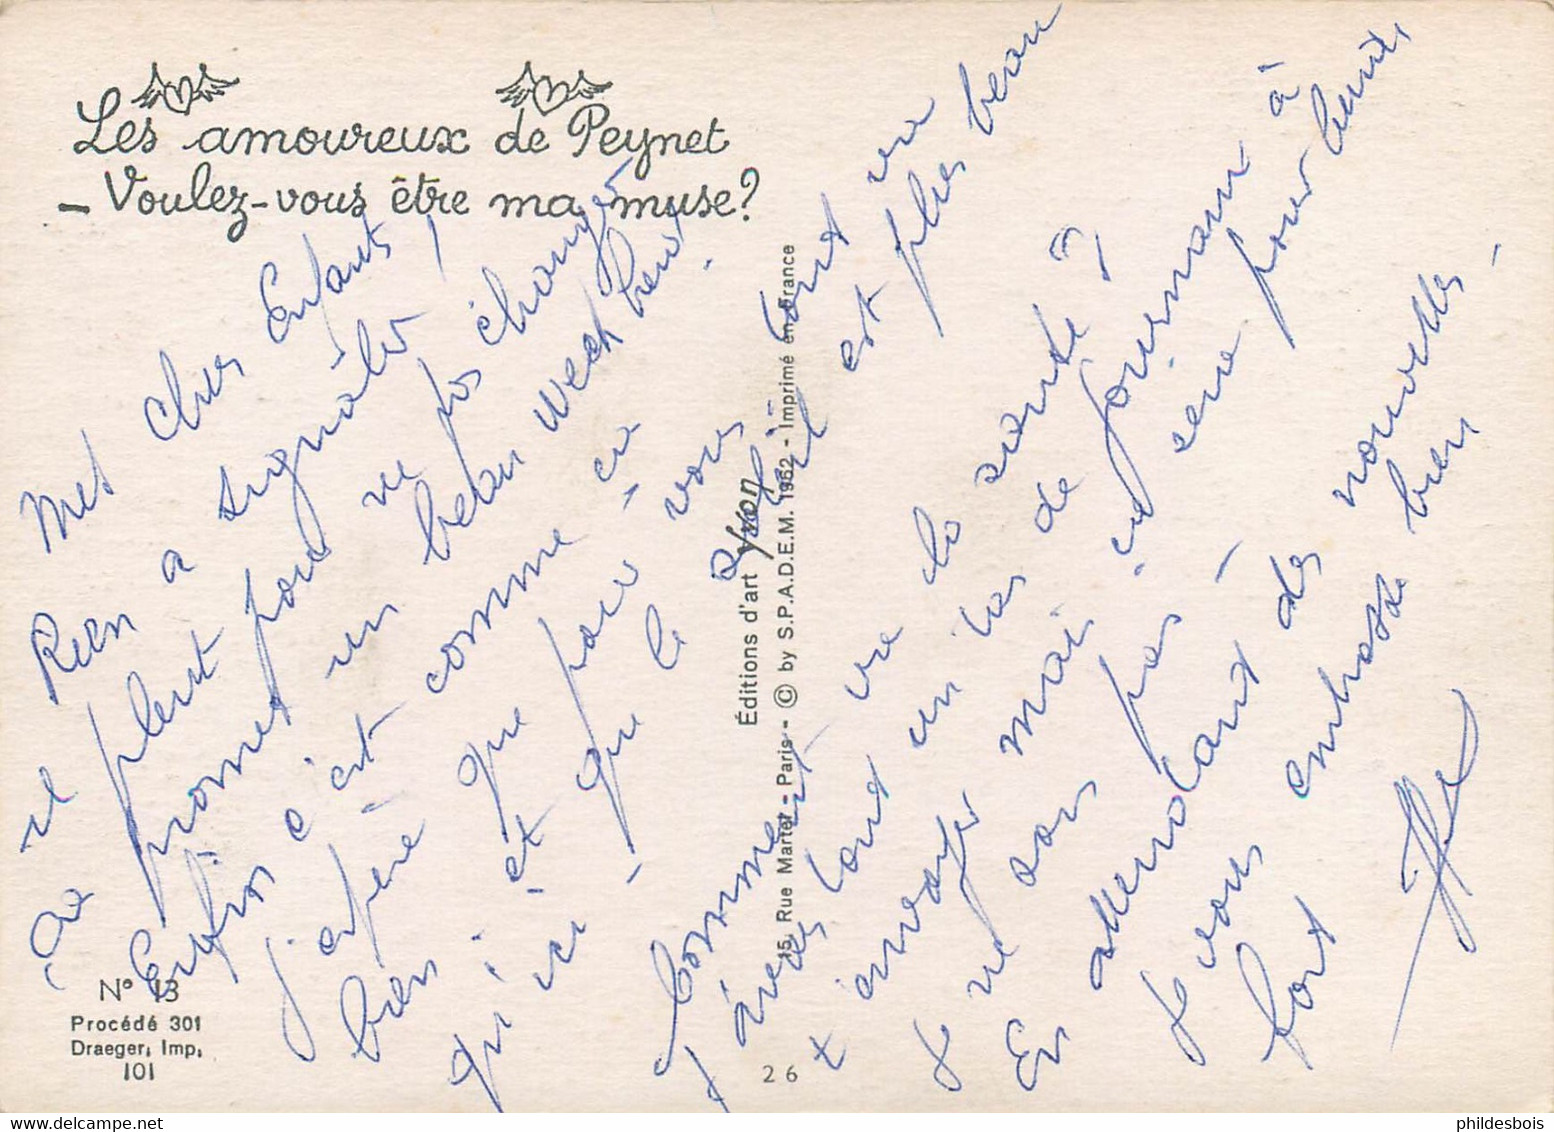 Les amoureux de Peynet
- Voulez-vous être ma muse?
Mes chers Enfants
Rien a signaler !
il pleut pour ne pas changer
ça promet un beau week hend.
Enfin c'est comme ça
j'espère que pour vous tout va
bien et que le soleil est plus beau
qu'ici -
Comment va la santé ?
j'avais tout un tas de journaux à
t'envoyer mais ça sera pour lundi,
Je ne sors pas -
En attendant des nouvelles -
Je vous embrasse bien
fort
Éditions d'art yvon
15, Rue Martel - Paris - © by S.P.A.D.E.M. 1962 - Imprimé en France
N° 13
Procédé 301
Draeger, Imp.
101
26
phildesbois